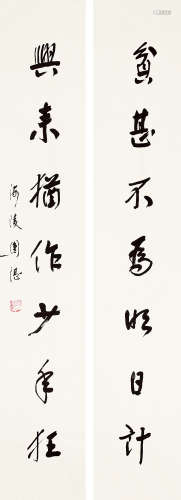 貧甚不爲明日計
興來猶作少年狂
海陵圉湛